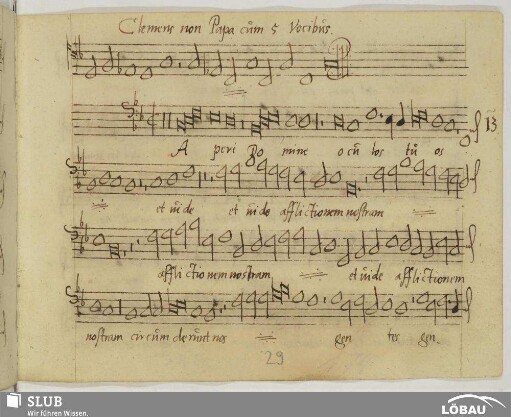 Clemens non Papa cũm 5 Vocibũs.
A peri Do mine o cũ los tũ os 13
et vide et vide afflictionem nostram
afflictio nem nostram et vide afflictionem
nostram circũm derũnt nos gen tes gen.
29
SLUB
Wir führen Wissen.
LÖBAU